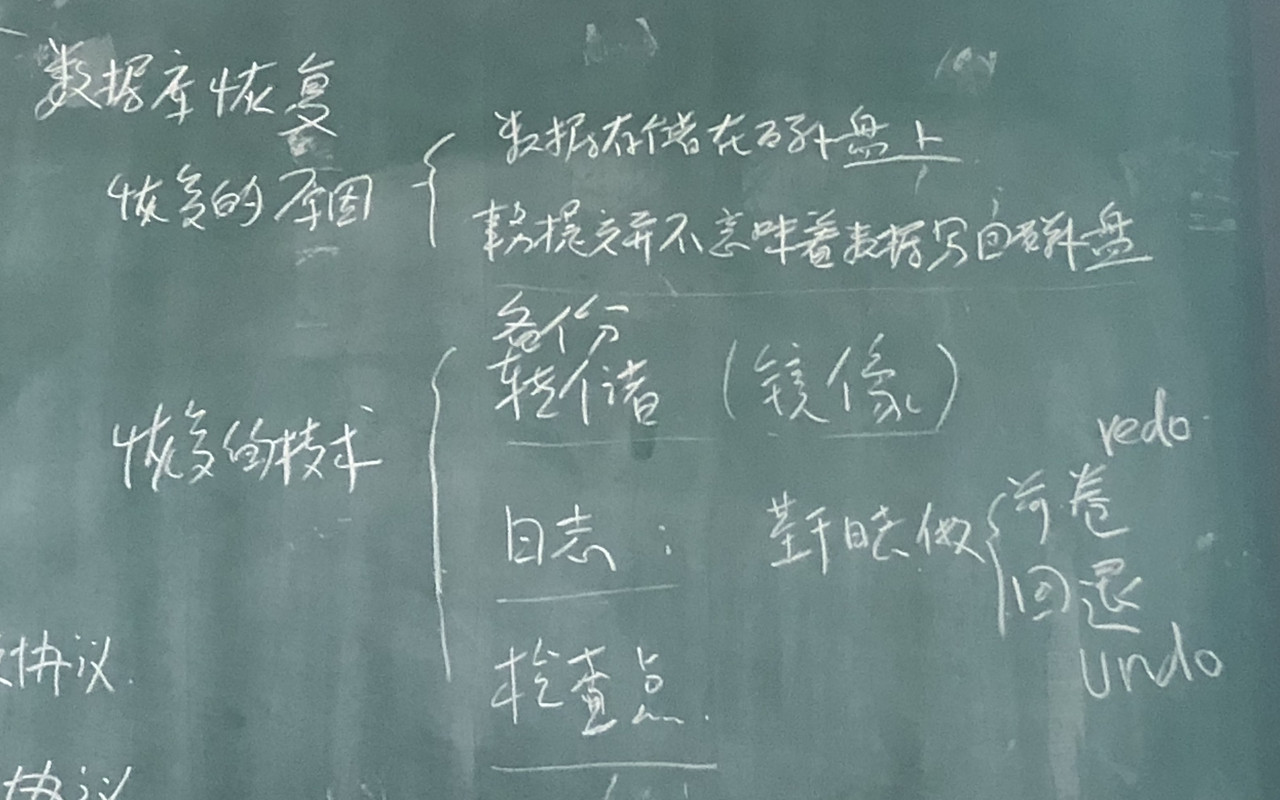 数据库恢复
恢复的原因
数据存储在磁盘上
事务提交并不意味着数据写回磁盘
恢复的技术
备份
转储 (镜像)
日志: 基于日志做
前卷 redo
回退 undo
检查点.
协议.
协议